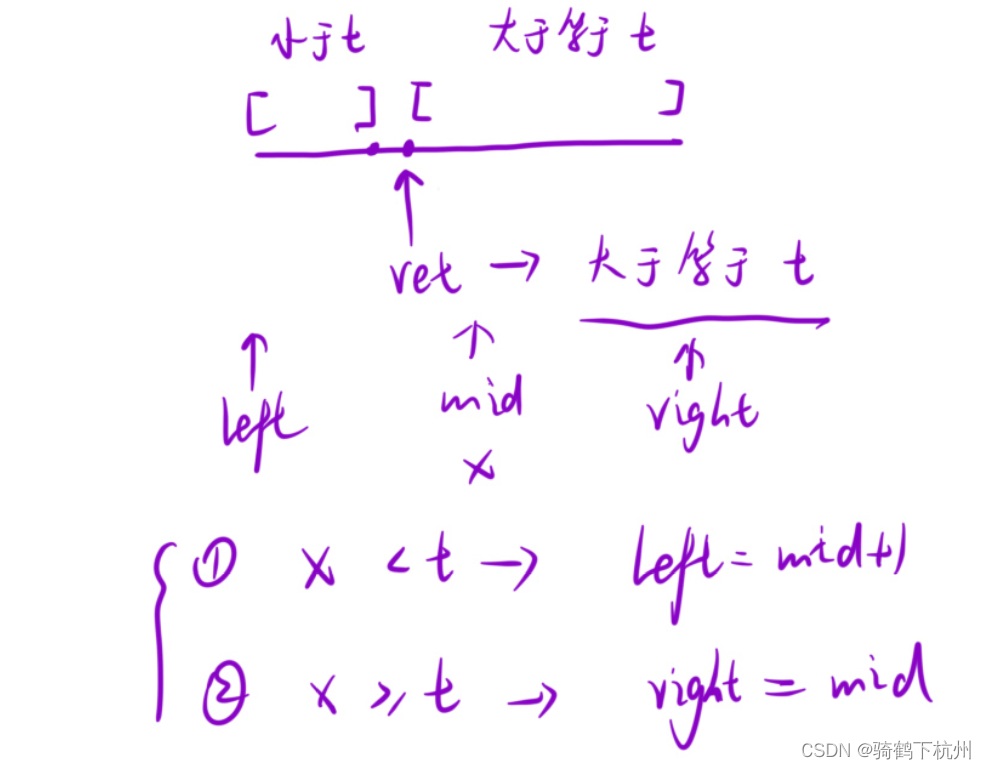 小于t 大于等于 t
[ ] [ ]
ret → 大于等于 t
left mid right
x
① x < t → left = mid+1
② x ≥ t → right = mid
CSDN @骑鹤下杭州